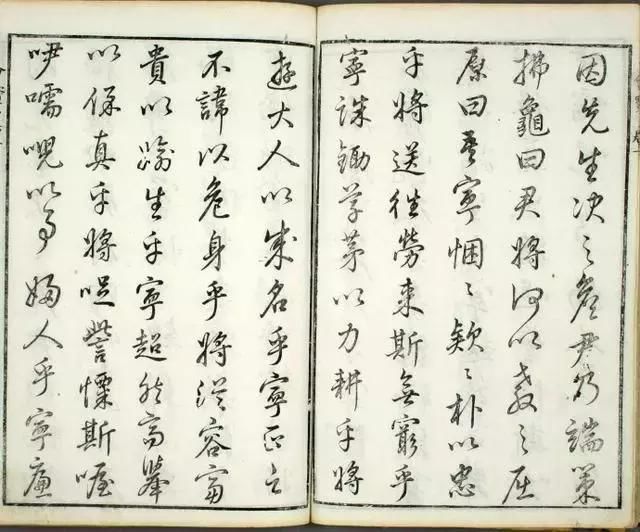 因先生決之詹尹乃端策
拂龜曰君將何以教之屈
原曰吾寧悃々欵々朴以忠
乎將送徃勞来斯無窮乎
寧誅鋤草茅以力耕乎將
遊大人以成名乎寧正言
不諱以危身乎將從容富
貴以媮生乎寧超然高舉
以保真乎將哫訾慄斯喔
咿嚅唲以事婦人乎寧廉